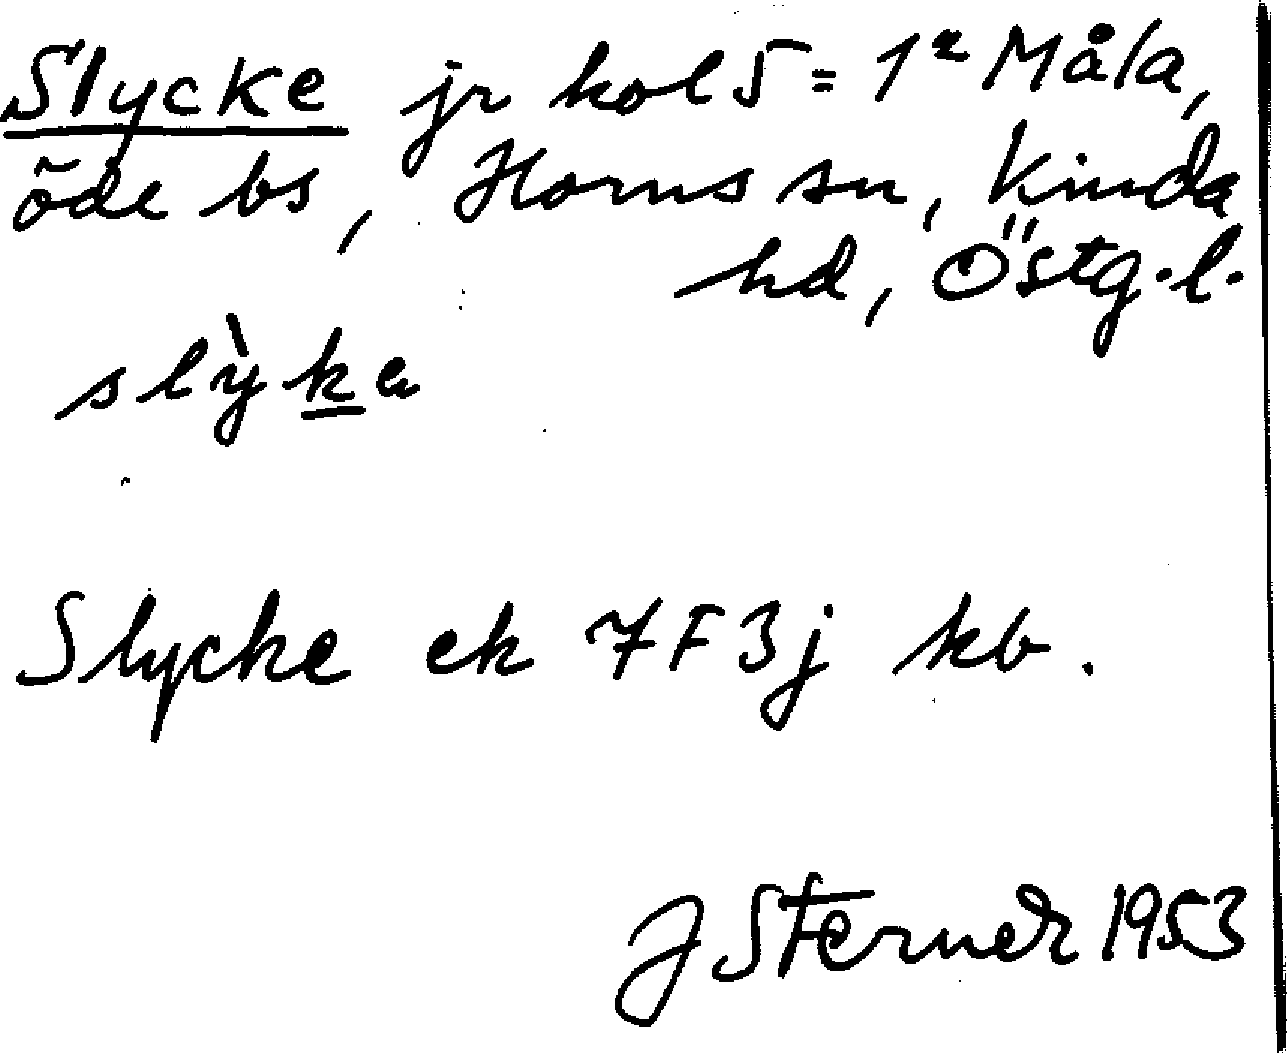 Slycke jr kol 5 = 1² Måla,
öde bs, Horns sn, Kinda
hd, Östg.l.
slỳka
Slycke ek 7F3j kb.
J Sterner 1953